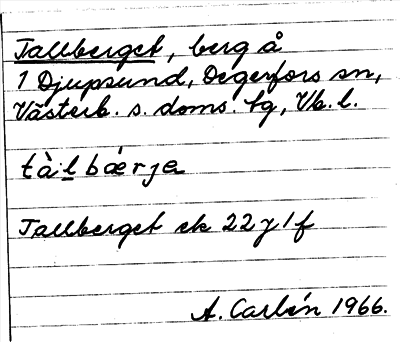 Tallberget, berg å
1 Djupsund, Degerfors sn,
Västerb. s. doms. tg, Vb. l.
tàl̲bæ̀rje
Tallberget ek 22 y 1 f
A. Carlén 1966.